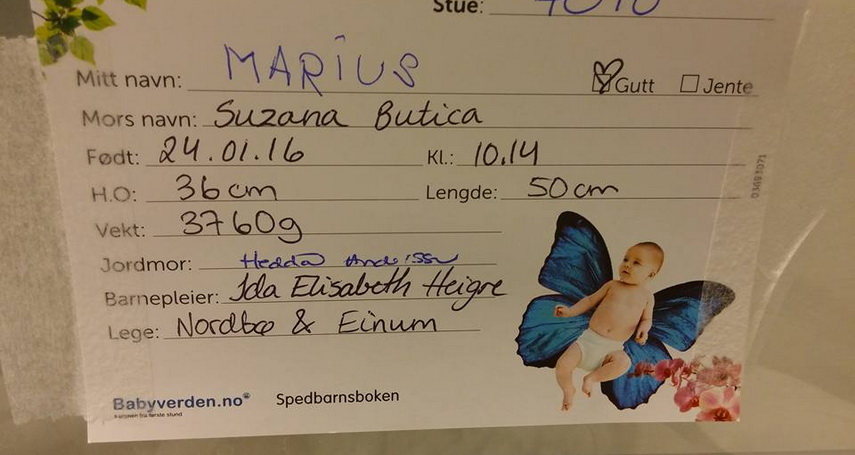 Stue:
Mitt navn: MARIUS Gutt Jente
Mors navn: Suzana Butica
Født: 24.01.16 Kl.: 10.14
H.O: 36cm Lengde: 50cm
Vekt: 3760g
Jordmor: Hedda
Barnepleier: Ida Elisabeth Heigre
Lege: Nordbø & Einum
Babyverden.no Spedbarnsboken